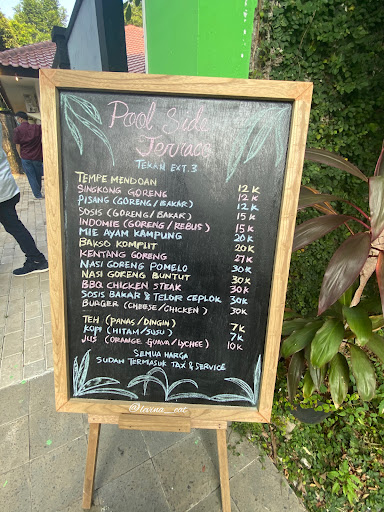 Pool Side
Terrace
TEKAN EXT. 3
TEMPE MENDOAN 12 K
SINGKONG GORENG 12 K
PISANG (GORENG/BAKAR) 12 K
SOSIS (GORENG/BAKAR) 15 K
INDOMIE (GORENG/REBUS) 15 K
MIE AYAM KAMPUNG 20 K
BAKSO KOMPLIT 20 K
KENTANG GORENG 27 K
NASI GORENG POMELO 30 K
NASI GORENG BUNTUT 30 K
BBQ CHICKEN STEAK 30 K
SOSIS BAKAR & TELOR CEPLOK 30 K
BURGER (CHEESE/CHICKEN) 30 K
TEH (PANAS/DINGIN) 7 K
KOPI (HITAM/SUSU) 7 K
JUS (ORANGE GUAVA/LYCHEE) 10 K
SEMUA HARGA
SUDAH TERMASUK TAX & SERVICE